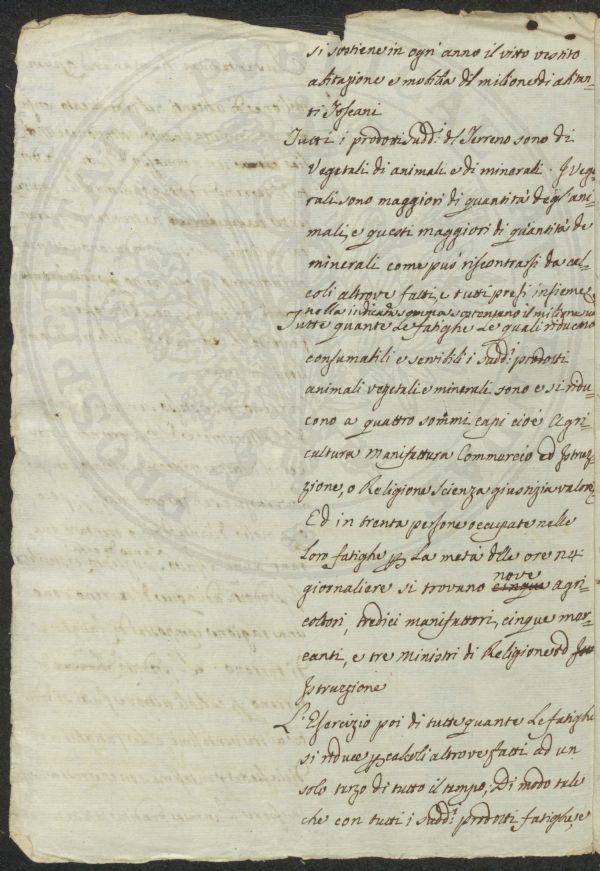 si sostiene in ogn' anno il vitto vestito
abitazione e mobilia del milione di abitan=
ti Toscani
Tutti i prodotti Sudd.i del Terreno sono di
Vegetali di animali e di minerali. I Vege=
tali sono maggiori di quantità degl' ani=
mali, e questi maggiori di quantità de
minerali come può riscontrarsi da cal=
coli altrove fatti, e tutti presi insieme
nella indicata somma sostentano il milione
Tutte quante Le fatighe Le quali riducono
consumabili e servibili i Sudd.i prodotti
animali vegetali e minerali sono e si ridu=
cono a quattro sommi capi cioè Agri=
cultura Manifattura Commercio ed Istru=
zione, o Religione Scienza giustizia valore
Ed in trenta persone occupate nelle
Loro fatighe p La metà delle ore n 24
nove
giornaliere si trovano cinque Agri=
coltori, tredici manifattori, cinque mer=
canti, e tre Ministri di Religione ed
Istruzione
L'Esercizio poi di tutte quante Le fatighe
si riduce p calcoli altrove fatti ad un
solo terzo di tutto il tempo, Di modo tale
che con tutti i Sudd.i prodotti fatighe, e
PROSPERITATI